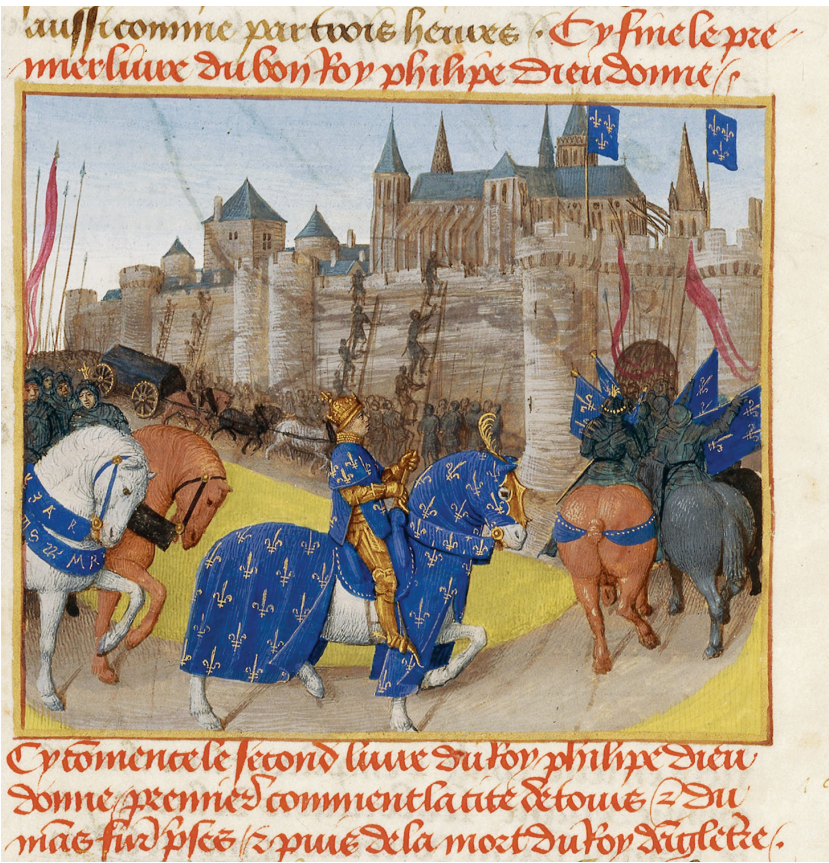 aussi comme par trois heures . Cy fine le pre
mier livre du bon Roy philipe dieu donne
Cy cōmence le second livre du Roy philipe dieu
donne / premier commēt la cite de tours ⁊ du
mās furēt pses / ⁊ puis de la mort du Roy dāgletre .